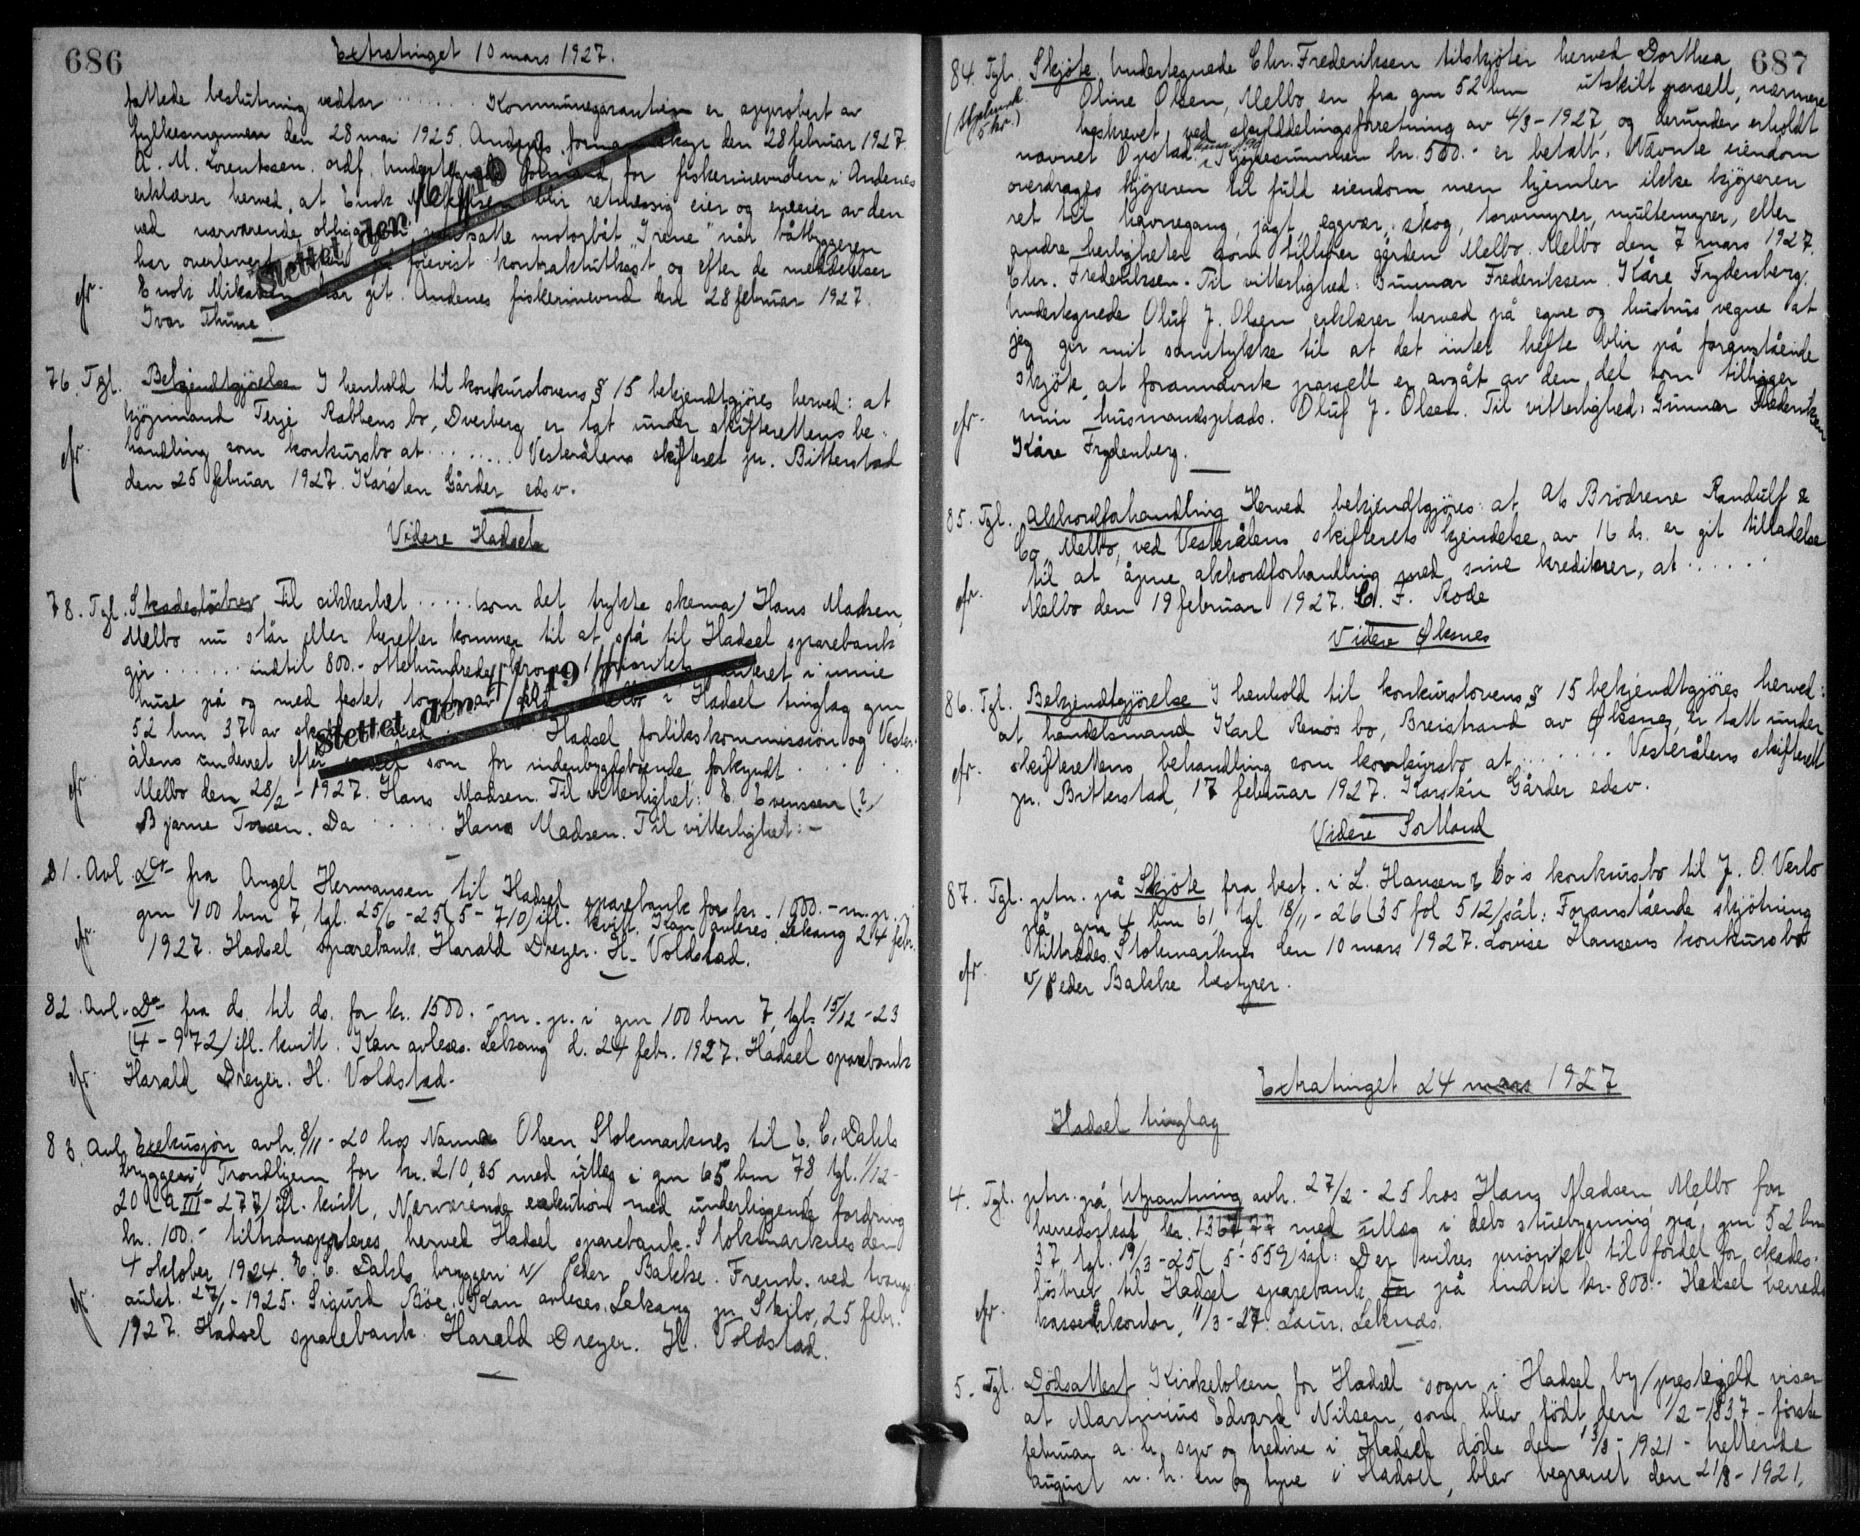 686
Extratinget 10 mars 1927.
fattede beslutning vedtar ....... Kommunegarantien er approbert av
fylkesmannen den 28 mai 1925. Andenes den 28 februar 1927.
A. M. Lorentsen. ordf. Undertegnede formand for fiskerinevnden i Andenes
erklærer herved, at Enok Mikalsen blir retmessig eier og eneeier av den
ved nærværende pantsatte motorbåt "Irene" når båtbyggeren
har overlevert forevist kontraktutkast og efter de meddelelser
cfr. Enok Mikalsen har git. Andenes fiskerinevnd den 28 februar 1927.
Ivar Thune
Slettet den 19
76. Tgl. Bekjendtgjörelse I henhold til konkurslovens § 15 bekjendtgjöres herved: at
kjöpmand Terje Rabbens bo, Dverberg er tat under skifterettens be-
cfr. handling som konkursbo at ........ Vesterålens skifteret pr. Bitterstad
den 25 februar 1927. Karsten Gårder edsv.
Videre Hadsel
78. Tgl. Skadeslösbrev Til sikkerhet ..... (som det trykte skema) Hans Madsen,
Melbo nu står eller herefter kommer til at stå til Hadsel sparebank
gir ....... indtil 800.- ottehundrede kroner prioritet i mine
huse på og med festet tomt av Melbo i Hadsel tinglag gnr
52 bnr 37 av Hadsel forlikskommission og Vester-
ålens underret efter varsel som for indenbygdsboende forkyndt .....
cfr. Melbo den 28/2 - 1927. Hans Madsen. Til vitterlighet: E. Evenssen (?)
Bjarne Torsen. Da ...... Hans Madsen. Til vitterlighet: -
Slettet den 19
81. Avl. Do fra Angel Hermansen til Hadsel sparebank for kr. 1000.- m. p. i
gnr 100 bnr 7, tgl. 25/6 - 25 (5 - 710) ifl. kvitt. Kan avleses. Lekang 24 febr.
cfr. 1927. Hadsel sparebank. Harald Dreyer. H. Voldstad.
82. Avl. Do fra ds. til ds. for kr. 1500.- m. p. i gnr 100 bnr 7, tgl. 15/12 - 23
(4 - 972) ifl. kvitt. Kan avleses. Lekang d. 24 febr. 1927. Hadsel sparebank
cfr. Harald Dreyer. H. Voldstad.
83. Avl. Exekusjon avh. 8/11 - 20 hos Nanna Olsen Stokmarknes til E. C. Dahls
bryggeri, Trondhjem for kr. 210,85 med utlæg i gnr 65 bnr 78 tgl. 1/12 -
20 (a III - 277) ifl. kvitt. Nærværende exekution med underliggende fordring
kr. 100.- tiltransporteres herved Hadsel sparebank. Stokmarknes den
4 oktober 1924. E. C. Dahls bryggeri v/ Peder Bakke. Freml. ved tvangs-
cfr. aukt. 27/1 - 1925. Sigurd Böe. Kan avleses. Lekang pr. Skilv, 25 febr.
1927. Hadsel sparebank. Harald Dreyer. H. Voldstad.
687
84. Tgl. Skjöte Undertegnede Chr. Frederiksen tilskjöter herved Dorthea
(Stpl.merk 5 kr.) Oline Olsen, Melbo en fra gnr 52 bnr utskilt parsell, nærmere
beskrevet ved skylddelingsforretning av 4/3 - 1927, og derunder erholdt
navnet Kjöpesummen kr. 500.- er betalt. Nævnte eiendom
overdrages kjöperen til fuld eiendom men hjemler ikke kjöperen
ret til havnegang, jagt, eggvær, skog, torvmyrer, multemyrer, eller
andre herligheter som tilhörer gården Melbo. Melbo den 7 mars 1927.
Chr. Frederiksen. Til vitterlighed: Gunnar Frederiksen. Kåre Frydenberg.
Undertegnede Oluf J. Olsen erklærer herved på egne og hustrus vegne at
jeg gir mit samtykke til at det intet hefte blir på foranstående
skjöte, at forannævnte parsell er avgåt av den del som tilligger
cfr. min husmandsplads. Oluf J. Olsen. Til vitterlighed: Gunnar Frederiksen
Kåre Frydenberg.
85. Tgl. Akkordforhandling Herved bekjendtgjöres: at A/s Brödrene Randulf &
Co, Melbo, ved Vesterålens skifterets kjendelse av 16 ds. er git tilladelse
til at åpne akkordforhandling med sine kreditorer, at ......
cfr. Melbo den 19 februar 1927. F. Rode
Videre Øksnes
86. Tgl. Bekjendtgjörelse I henhold til konkurslovens § 15 bekjendtgjöres herved:
at handelsmand Karl Renös bo, Breistrand av Øksnes, er tatt under
cfr. skifterettens behandling som konkursbo at ....... Vesterålens skifterett
pr. Bitterstad, 17 februar 1927. Karsten Gårder edsv.
Videre Sortland
87. Tgl. ptn. på Skjöte fra best. i L. Hansen & Co's konkursbo til J. O. Verlo
på gnr 4 bnr 61, tgl. 18/11 - 26 (35 fol 512) sål: Foranstående skjötning
tiltrædes. Stokmarknes den 10 mars 1927. Lovise Hansens konkursbo
cfr. v/ Peder Bakke bestyrer.
Extratinget 24 mars 1927
Hadsel tinglag
4. Tgl. ptn. på Utpantning avh. 27/2 - 25 hos Hans Madsen, Melbo for
herredsskat kr. med utlæg i dets stuebygning på gnr 52 bnr
37, tgl. 19/3 - 25 (5 - 559) sål: Der vikes prioritet til fordel for skades-
cfr. lösbrev til Hadsel sparebank, på indtil kr. 800.- Hadsel herreds-
kassererkontor, 11/3 - 27. Laur. Leknes.
5. Tgl. Dödsattest Kirkeboken for Hadsel sogn i Hadsel by/prestegjeld viser
at Martinius Edvard Nilsen, som blev födt den 1/2 - 1837 - förste
februar a. h. syv og tredive i Hadsel döde den 13/8 - 1921 - trettende
august n. h. en og tyve i Hadsel, blev begravet den 21/8 - 1921,